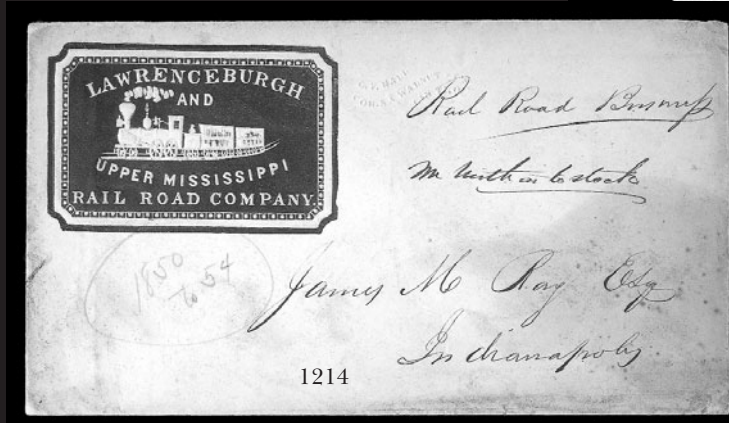 LAWRENCEBURGH
AND
UPPER MISSISSIPPI
RAIL ROAD COMPANY.
Rail Road Business
stock
1850
to 54
James M Ray Esq
Indianapolis
1214